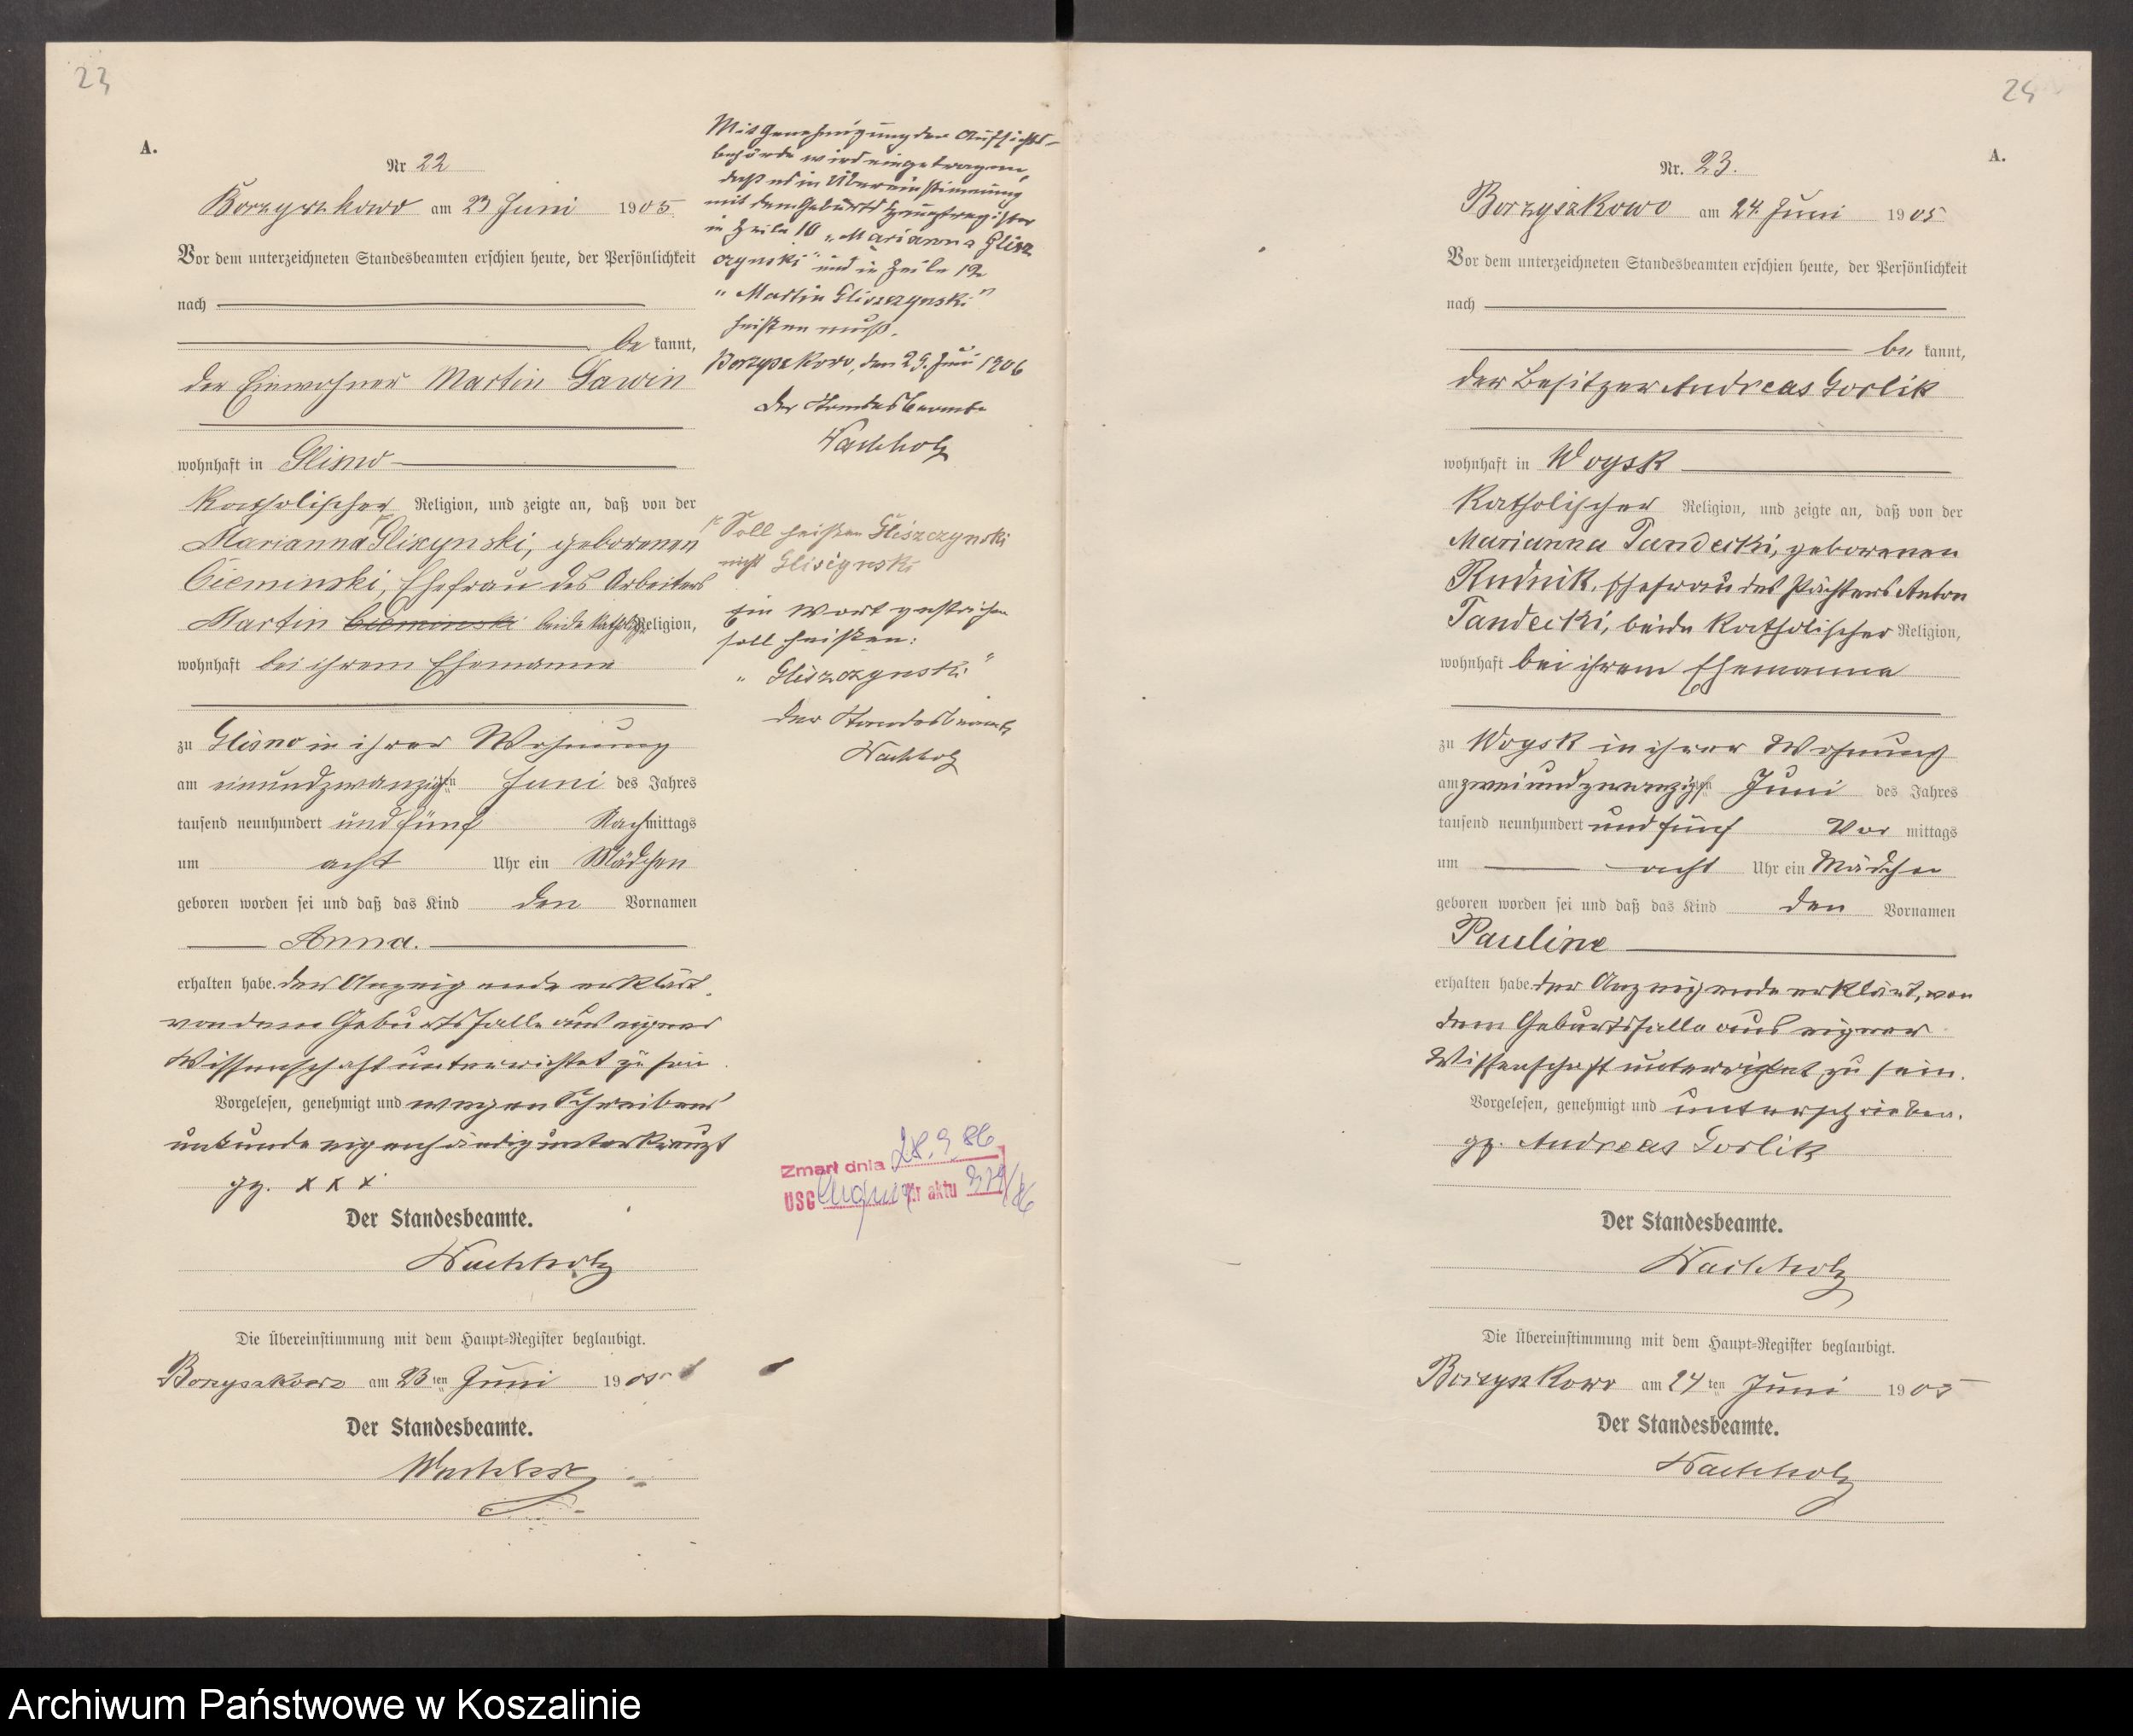 23
A.
Nr 22
Borzyszkowo am 23 Juni 1905.
Vor dem unterzeichneten Standesbeamten erschien heute, der Persönlichkeit
nach
be kannt,
der Einwohner Martin Gawin
wohnhaft in Glisno
Katholischer Religion, und zeigte an, daß von der
Marianna Glisynski, geborenen
Cieminski, Ehefrau des Arbeiters
Martin Cieminski beide katholisch Religion,
wohnhaft bei ihrem Ehemanne
zu Glisno in ihrer Wohnung
am einundzwanzigsten Juni des Jahres
tausend neunhundert und fünf Nachmittags
um acht Uhr ein Mädchen
geboren worden sei und daß das Kind den Vornamen
Anna.
erhalten habe. der Anzeigende erklärt,
von dem Geburtsfalle aus eigner
Wissenschaft unterrichtet zu sein
Vorgelesen, genehmigt und wegen Schreibens
unkunde eigenhändig unterkreuzt
gz. x x x
Der Standesbeamte.
Wachholz
Die Übereinstimmung mit dem Haupt=Register beglaubigt.
Borzyszkowo am 23 ten Juni 1905
Der Standesbeamte.
Wachholz
Mit Genehmigung der Aufsichts-
behörde wird eingetragen,
daß es in Übereinstimmung
mit dem Geburts Hauptregister
in Zeile 10 "Marianna Glisz
czynski" und in Zeile 12
"Martin Gliszczynski"
heißen muß.
Borzyszkowo, den 29. Juni 1906
Der Standesbeamte
Wachholz
Soll heißen Gliszczynski
nicht Glisiynski
Ein Wort gestrichen
soll heißen:
"Gliszczynski"
Der Standesbeamte
Wachholz
Zmarł dnia 28.9.86
USC nr aktu 379/86
24
A.
Nr. 23.
Borzyszkowo am 24. Juni 1905
Vor dem unterzeichneten Standesbeamten erschien heute, der Persönlichkeit
nach
be kannt,
der Besitzer Andreas Gorlik
wohnhaft in Woysk
Katholischer Religion, und zeigte an, daß von der
Marianna Tandecki, geborenen
Rudnik, Ehefrau des Pächters Anton
Tandecki, beide katholischer Religion,
wohnhaft bei ihrem Ehemanne
zu Woysk in ihrer Wohnung
am zweiundzwanzigsten Juni des Jahres
tausend neunhundert und fünf Vor mittags
um acht Uhr ein Mädchen
geboren worden sei und daß das Kind den Vornamen
Pauline
erhalten habe. der Anzeigende erklärt, von
dem Geburtsfalle aus eigner
Wissenschaft unterrichtet zu sein.
Vorgelesen, genehmigt und unterschrieben.
gz. Andreas Gorlik
Der Standesbeamte.
Wachholz
Die Übereinstimmung mit dem Haupt=Register beglaubigt.
Borzyszkowo am 24 ten Juni 1905
Der Standesbeamte.
Wachholz
Archiwum Państwowe w Koszalinie